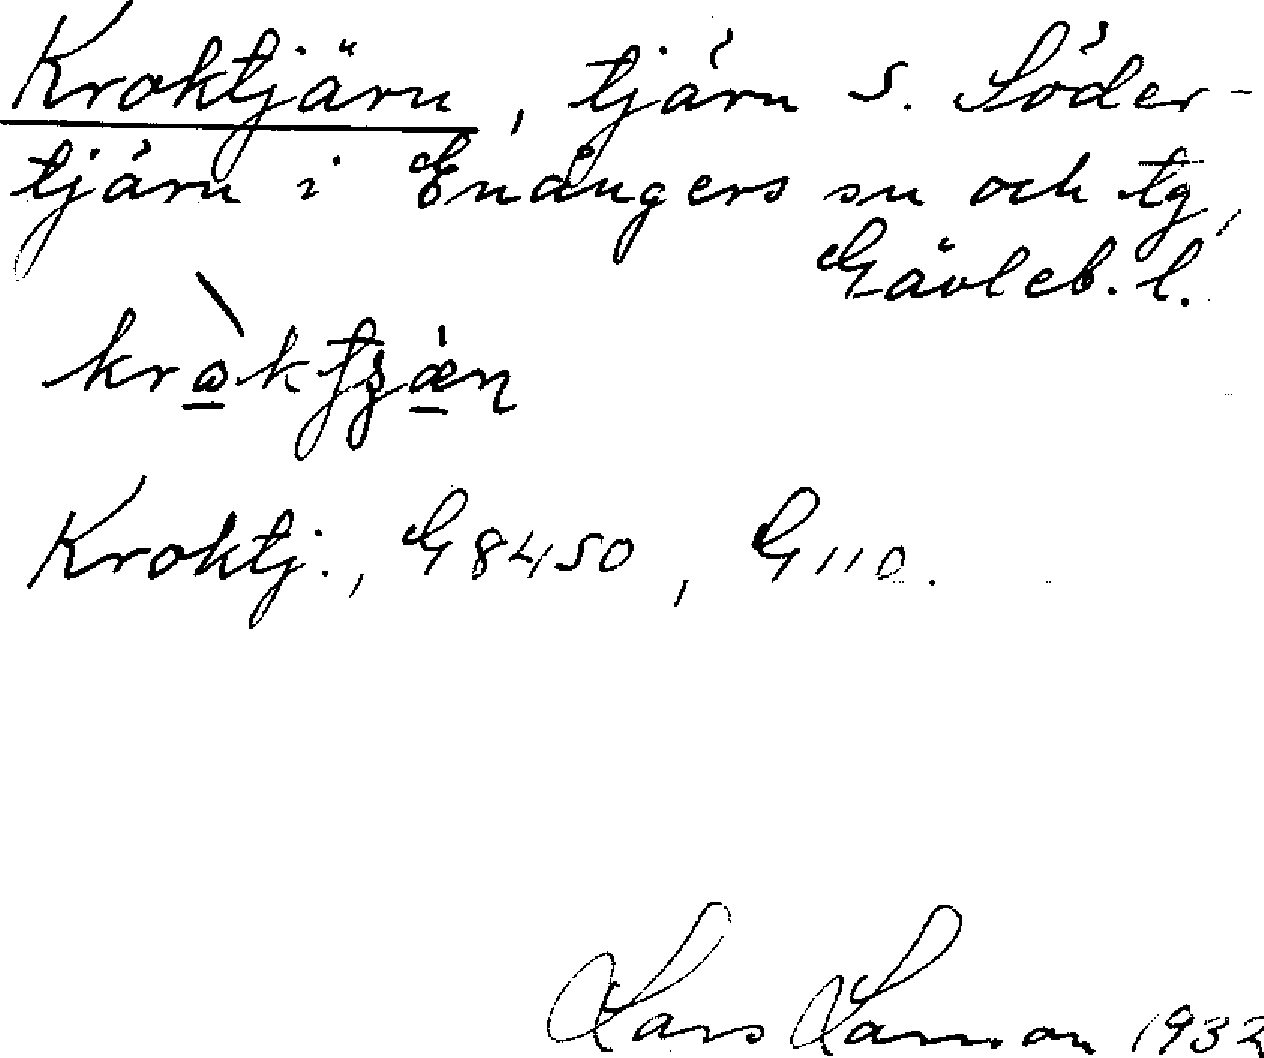 Kroktjärn, tjärn S. Söder-
tjärn i Enångers sn och tg,
Gävleb. l.
krɷ̀ktʂæ̀ɳ
Kroktj., G8450, G110.
Lars Larsson 1932